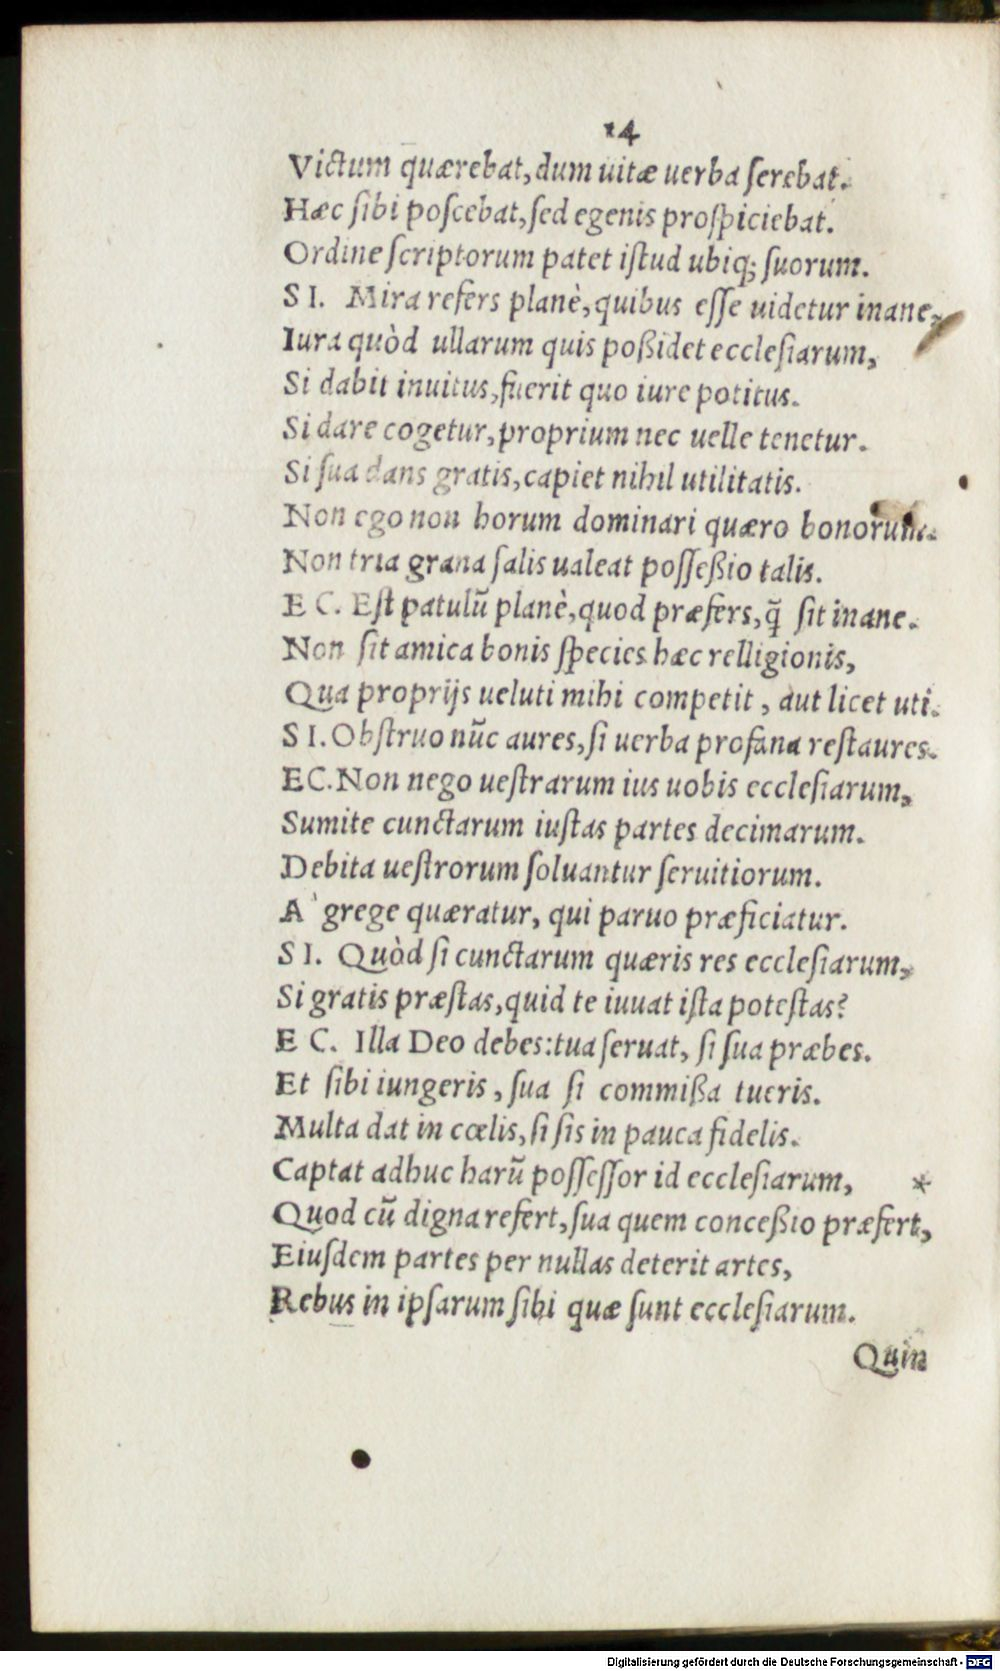 14
Victum quærebat, dum uitæ uerba ſerebat.
Hæc ſibi poſcebat, ſed egenis proſpiciebat.
Ordine ſcriptorum patet iſtud ubiq; ſuorum.
S I. Mira refers planè, quibus eſſe uidetur inane,
Iura quòd ullarum quis poßidet eccleſiarum,
Si dabit inuitus, fuerit quo iure potitus.
Si dare cogetur, proprium nec uelle tenetur.
Si ſua dans gratis, capiet nihil utilitatis.
Non ego non horum dominari quæro bonorum.
Non tria grana ſalis ualeat poſſeßio talis.
E C. Eſt patulū planè, quod præfers, q̃ ſit inane.
Non ſit amica bonis ſpecies hæc relligionis,
Qua proprijs ueluti mihi competit, aut licet uti.
S I. Obſtruo nūc aures, ſi uerba profana reſtaures.
EC. Non nego ueſtrarum ius uobis eccleſiarum,
Sumite cunctarum iuſtas partes decimarum.
Debita ueſtrorum ſoluantur ſeruitiorum.
A' grege quæratur, qui paruo præficiatur.
S I. Quòd ſi cunctarum quæris res eccleſiarum,
Si gratis præſtas, quid te iuuat iſta poteſtas?
E C. Illa Deo debes: tua ſeruat, ſi ſua præbes.
Et ſibi iungeris, ſua ſi commißa tueris.
Multa dat in cœlis, ſi ſis in pauca fidelis.
Captat adhuc harū poſſeſſor id eccleſiarum, *
Quod cū digna refert, ſua quem conceßio præfert,
Eiuſdem partes per nullas deterit artes,
Rebus in ipſarum ſibi quæ ſunt eccleſiarum.
Quin
Digitalisierung gefördert durch die Deutsche Forschungsgemeinschaft - DFG